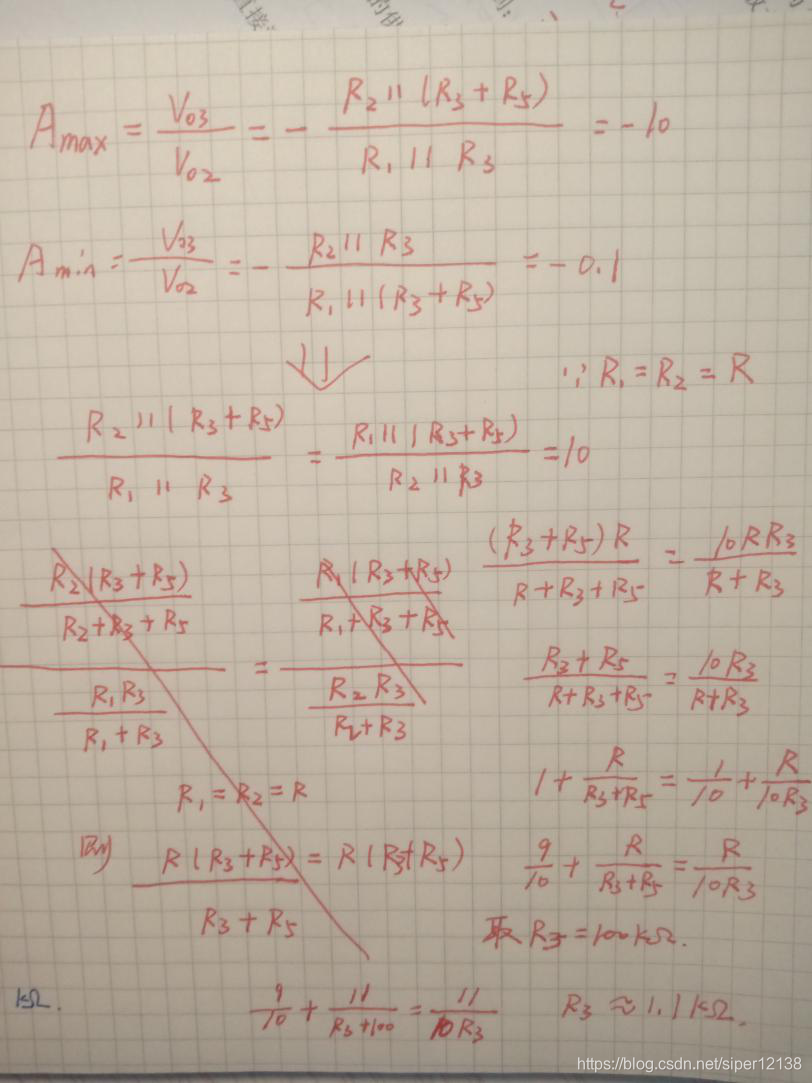 直接:
的伊
A_max = V_03 / V_02 = - R_2 || (R_3 + R_5) / R_1 || R_3 = -10
A_min = V_03 / V_02 = - R_2 || R_3 / R_1 || (R_3 + R_5) = -0.1
⇓
∵ R_1 = R_2 = R
R_2 || (R_3 + R_5) / R_1 || R_3 = R_1 || (R_3 + R_5) / R_2 || R_3 = 10
R_2 (R_3 + R_5) / R_2 + R_3 + R_5 / R_1 R_3 / R_1 + R_3 = R_1 (R_3 + R_5) / R_1 + R_3 + R_5 / R_2 R_3 / R_2 + R_3
R_1 = R_2 = R
则 R (R_3 + R_5) / R_3 + R_5 = R (R_3 + R_5)
(R_3 + R_5) R / R + R_3 + R_5 = 10 R R_3 / R + R_3
R_3 + R_5 / R + R_3 + R_5 = 10 R_3 / R + R_3
1 + R / R_3 + R_5 = 1 / 10 + R / 10 R_3
9 / 10 + R / R_3 + R_5 = R / 10 R_3
取 R_5 = 100 kΩ.
kΩ.
9 / 10 + 11 / R_3 + 100 = 11 / 10 R_3
R_3 ≈ 1.1 kΩ.
https://blog.csdn.net/siper12138